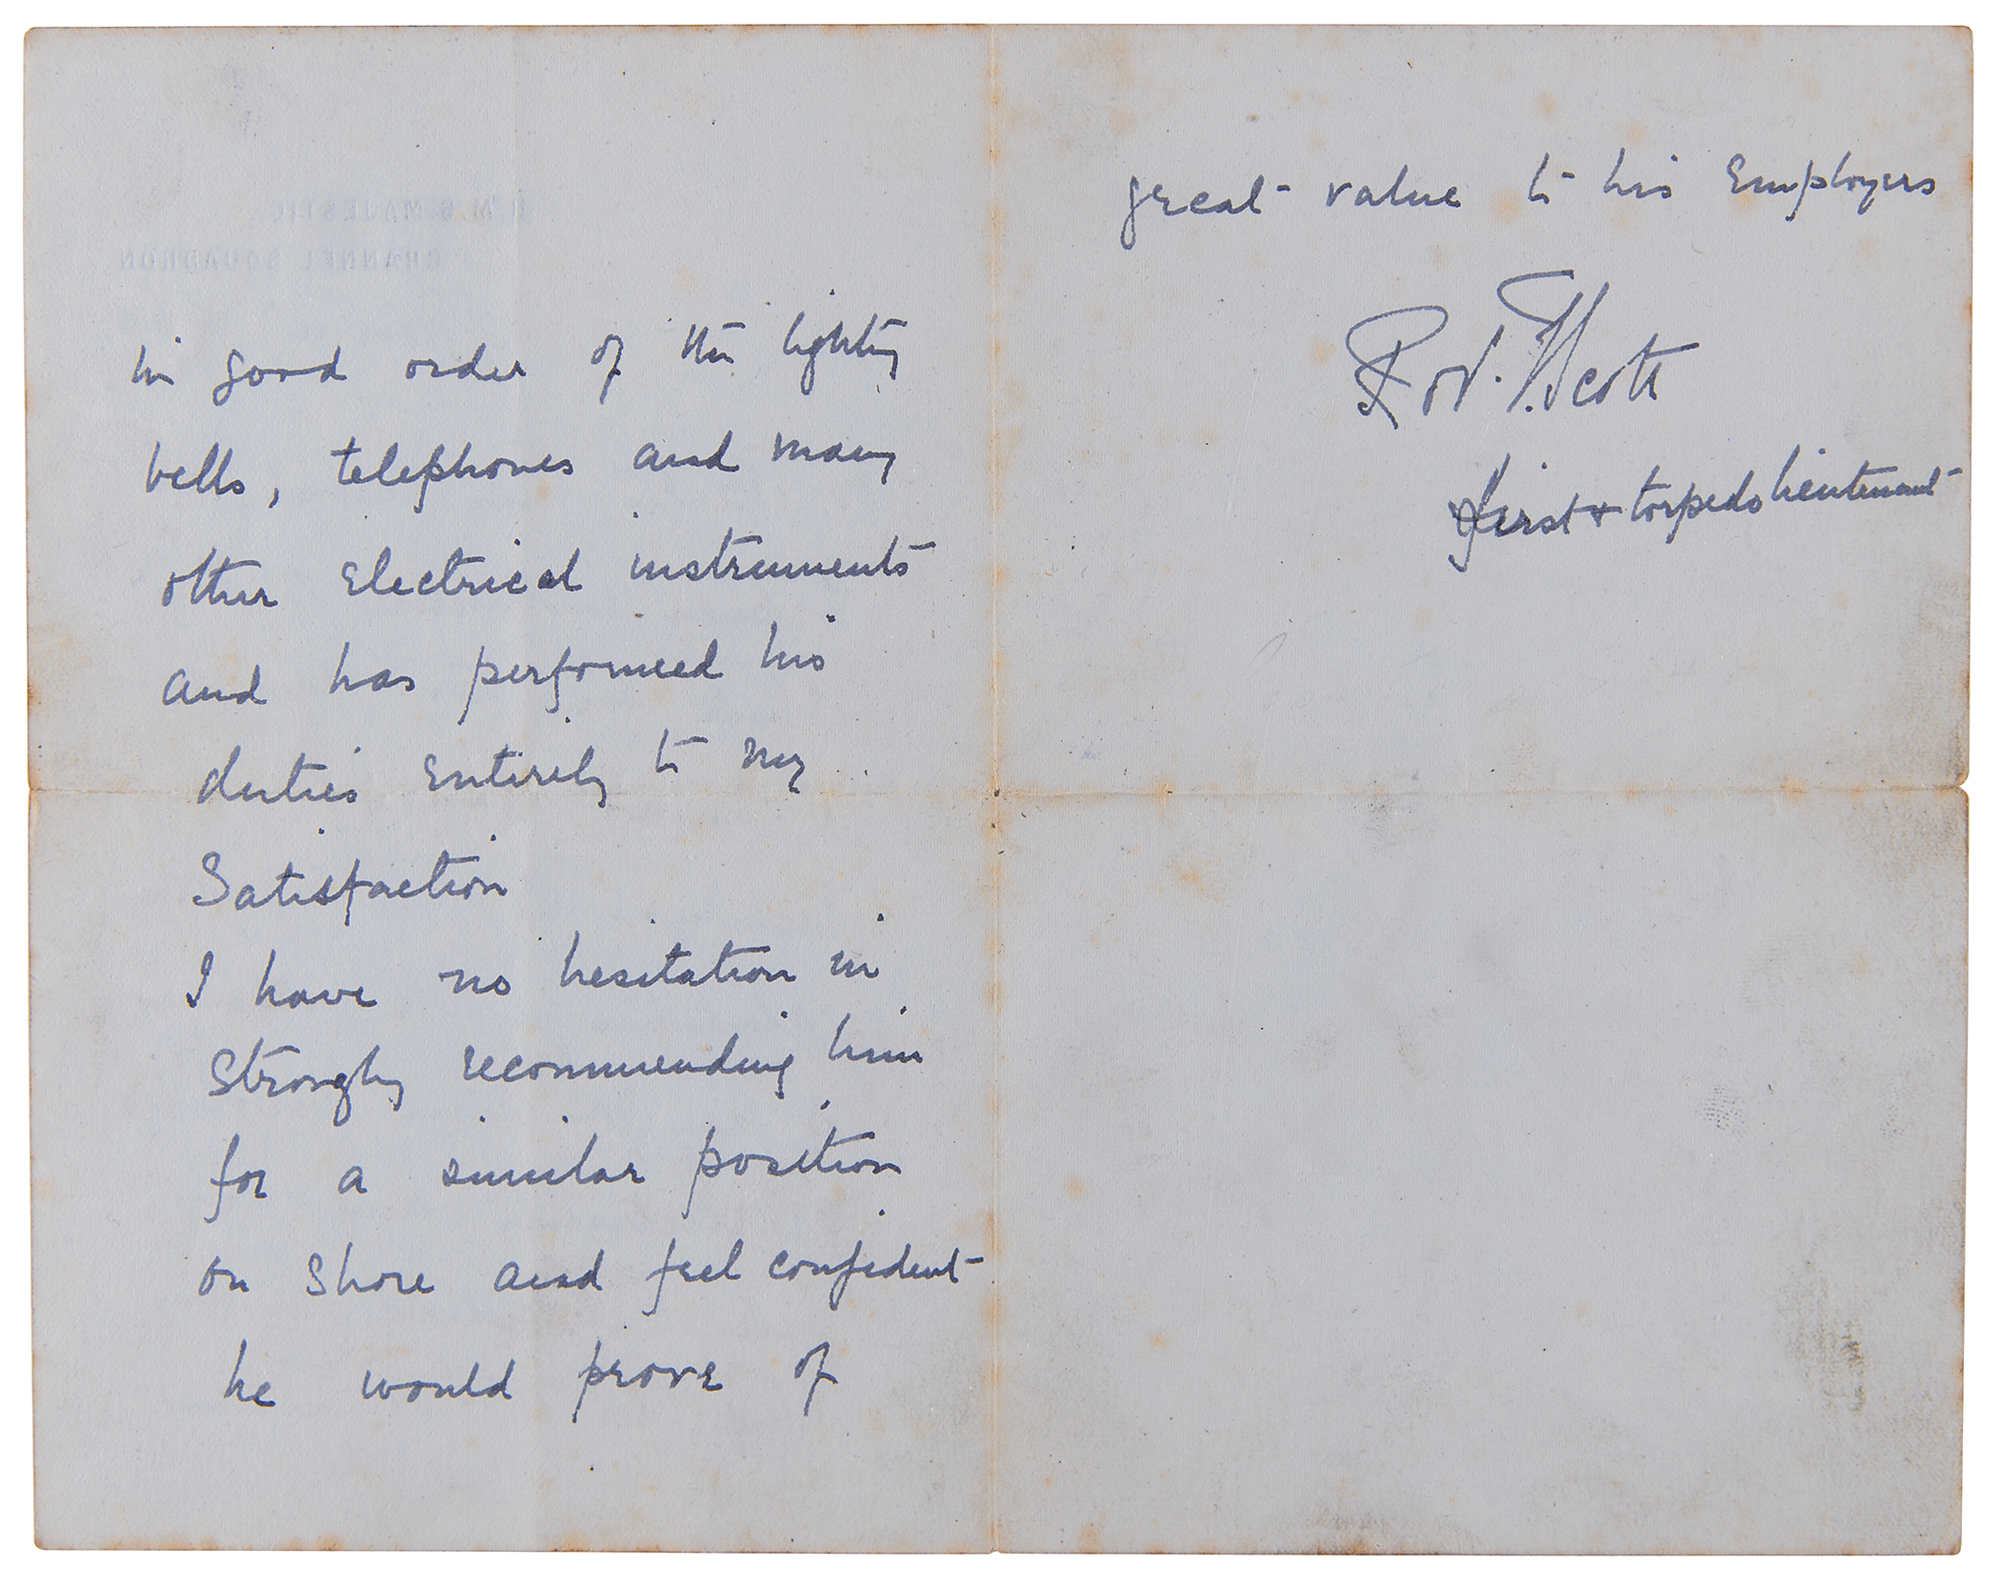 H.M.S. MAJESTIC
CHANNEL SQUADRON
in good order of the lighting
bells, telephones and many
other Electrical instruments
and has performed his
duties Entirely to my
Satisfaction
I have no hesitation in
Strongly recommending him
for a similar position
on Shore and feel confident
he would prove of
great value to his Employers
Robt. F. Scott
first & torpedo lieutenant